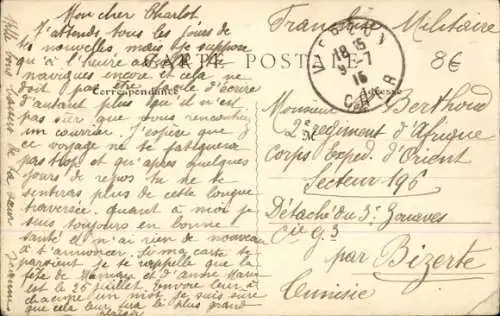 Mon cher Charlot
J'attends tous les jours de
tes nouvelles mais je suppose
qu'à l'heure
navigues encore et cela ne
doit pas être d'écrire
d'autant plus qu'il n'est
pas sûr que nous rencontrions
un courrier. J'espère que
ce voyage ne te fatiguera
pas trop et qu'après quelques
jours de repos tu ne te
sentiras plus de cette longue
traversée. Quant à moi je
suis toujours en bonne
santé et n'ai rien de nouveau
à t'annoncer. Si ma carte te
parvient je te rappelle que la
fête de Maman et d'Anne Marie
est le 26 juillet. Envoie leur à
chacune un mot, je suis sûre
que cela leur fera le plus grand
plaisir
Mille bons baisers de ta sœur
CARTE POSTALE
Correspondance
Adresse
Franchise Militaire
8€
18 15
9-7
15
CHER
Monsieur Berthoud
2e régiment d'Afrique
Corps Exped. d'Orient
Secteur 196
Détaché du 3e Zouaves
Cie G3
par Bizerte
Tunisie